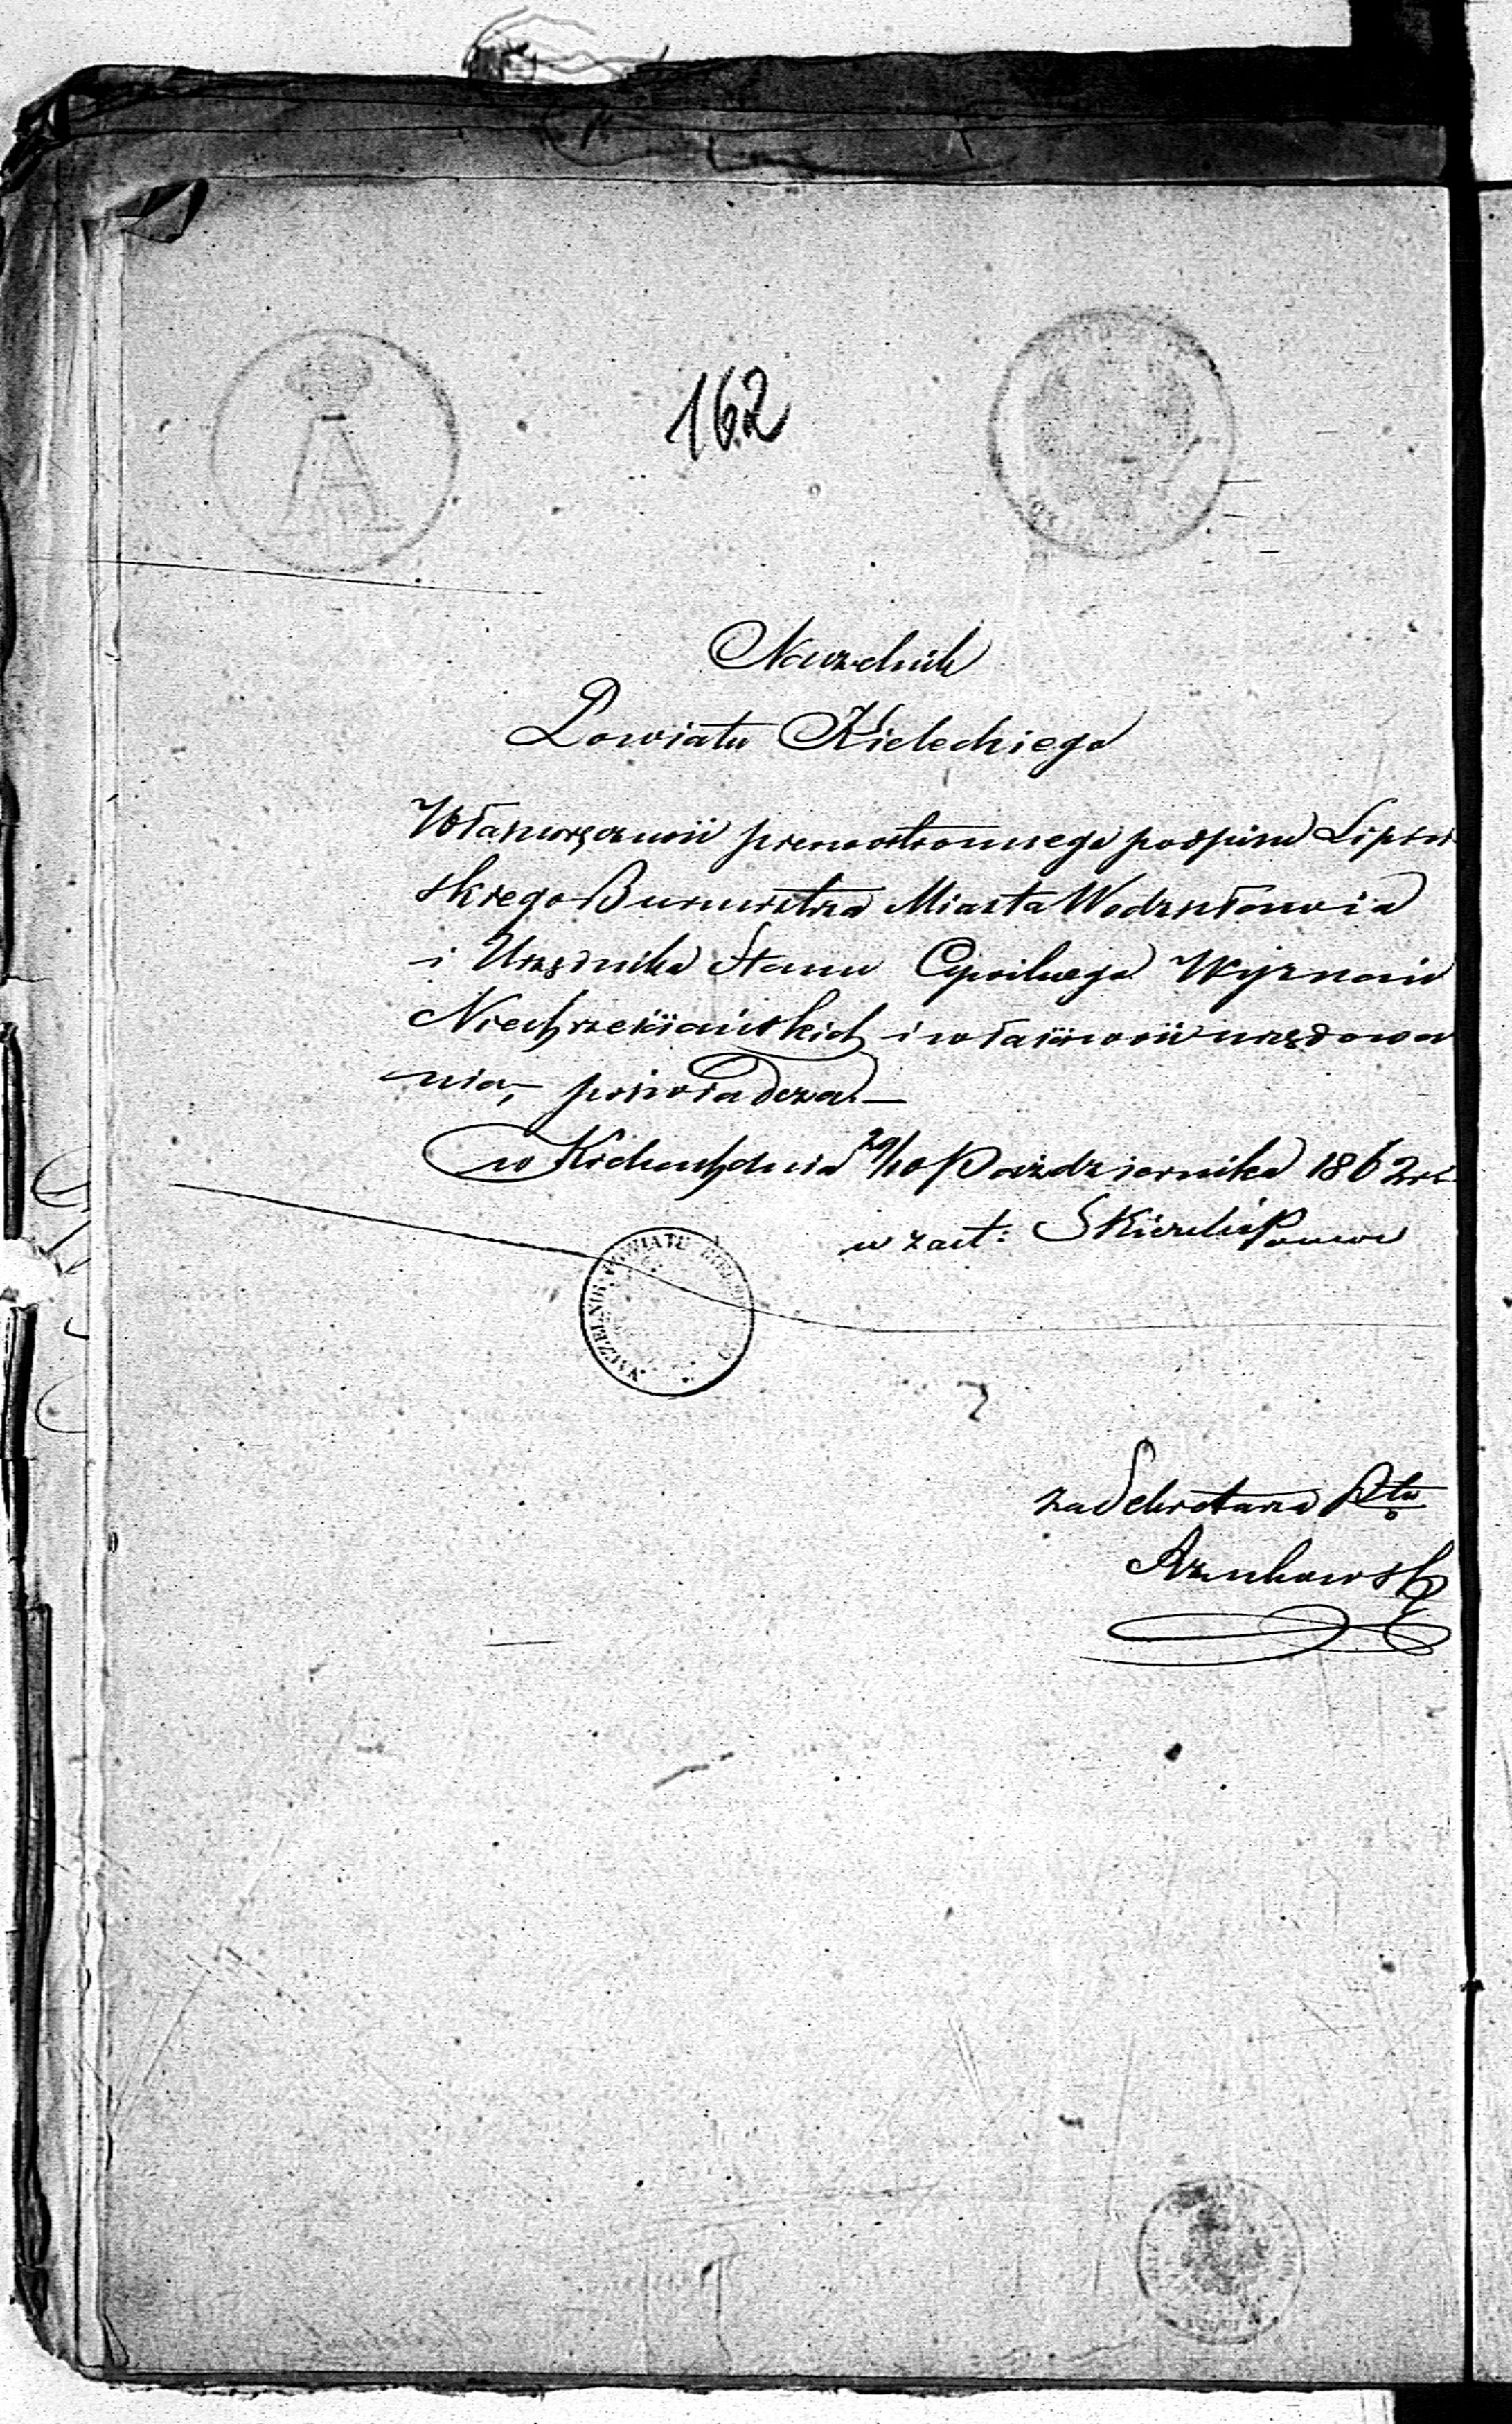 162
Naczelnik
Powiatu Kieleckiego
Własnoręczność pierwostronnego podpisu Lipiń
skiego Burmistrza Miasta Wodzisławia
i Urzędnika Stanu Cywilnego Wyznań
Niechrześciańskich i właściwość urzędowa
nia, poświadcza
w Kielcach dnia 29/10 Października 1862 r.
w zast:
NACZELNIK POWIATU
za Sekretarza Ptu